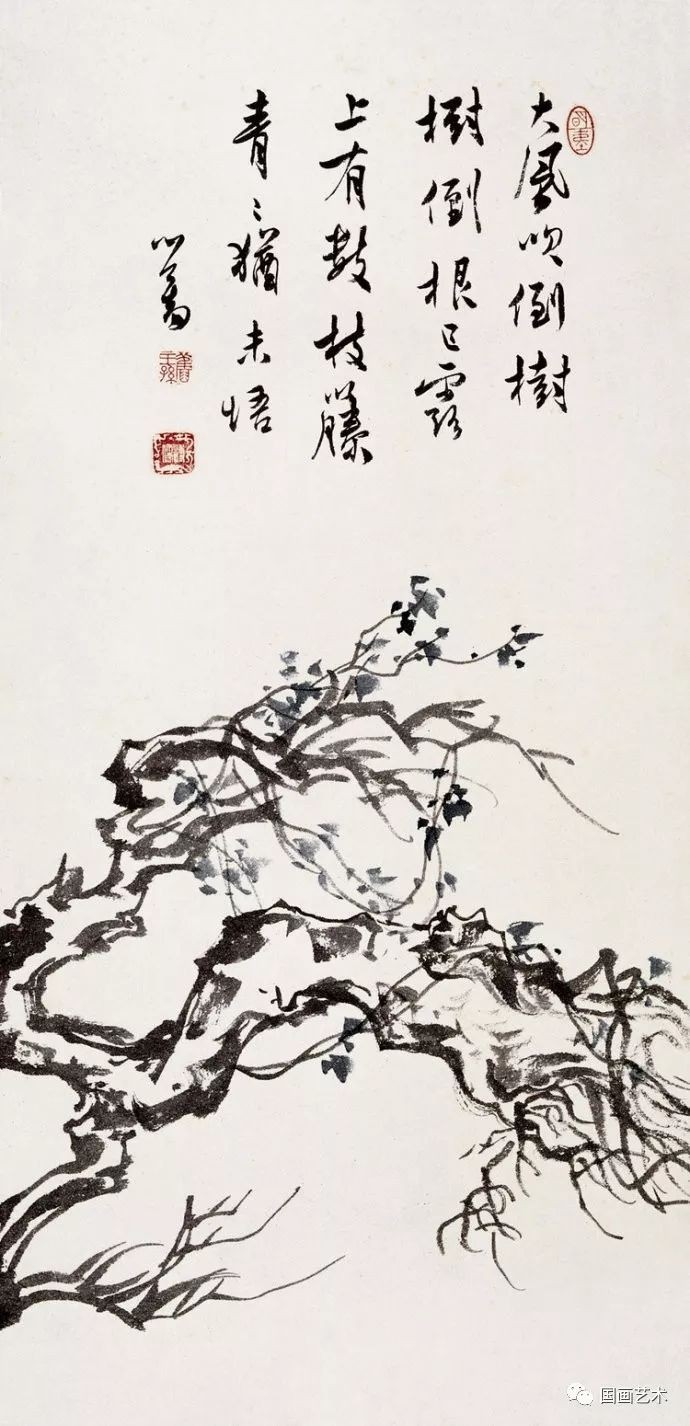 大風吹倒樹
樹倒根已露
上有數枝藤
青〻猶未悟
心畬
舊王孫
国画艺术